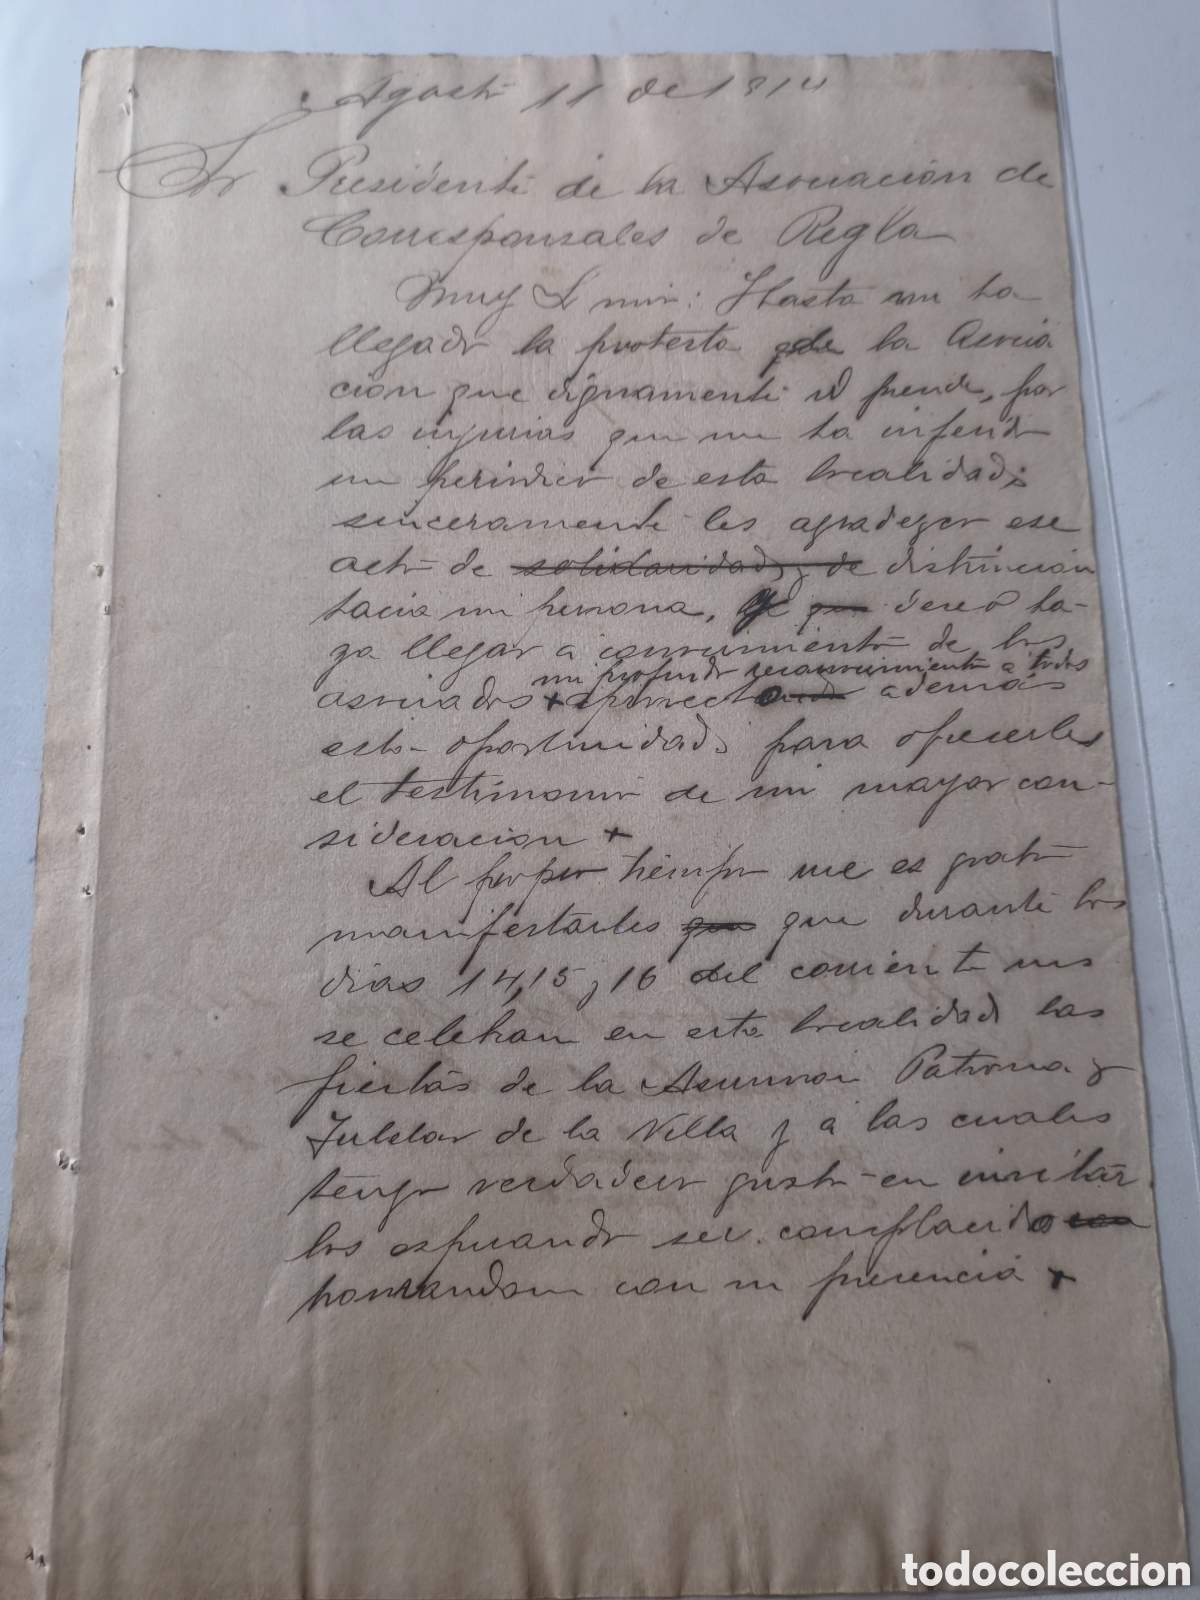 Agosto 11 de 191
Sr Presidente de la Asociación de
Corresponsales de Regla
Muy S mio: Hasta mi ha
llegado la protesta de la Asocia
cion que dignamente ud preside, por
las injurias que me ha inferido
un periodico de esta localidad;
sinceramente les agradezco ese
acto de solidaridad, y de distincion
hacia mi persona, y que deseo ha-
ga llegar a conocimiento de los
mi profundo reconocimiento a todos
asociados + aprovecho además
esta oportunidad; para ofrecerles
el testimonio de mi mayor con-
sideracion +
Al propio tiempo me es grato
manifestarles que que durante los
dias 14, 15 y 16 del corriente mes
se celebran en esta localidad las
fiestas de la Asuncion Patrona y
Tutelar de la Villa y a las cuales
tengo verdadero gusto en invitar
los esperando ser complacido
honrandome con su presencia +
todocoleccion